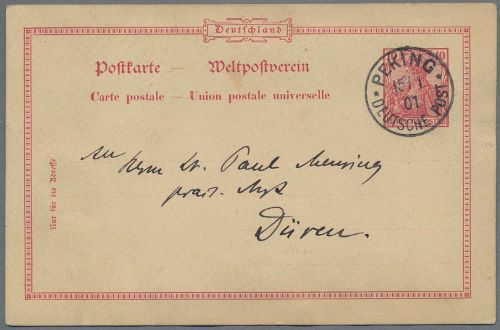 Deutschland
Postkarte – Weltpostverein
Carte postale – Union postale universelle
10
PEKING
15/1
01
DEUTSCHE POST
Nur für die Adresse
An
Herrn Dr. Paul
Düren.